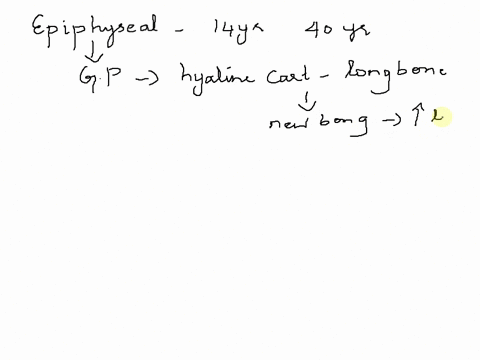 Epiphyseal - 14yr 40 yr
↓
G.P → hyaline cart - longbone
↓
new bong → ↑ l